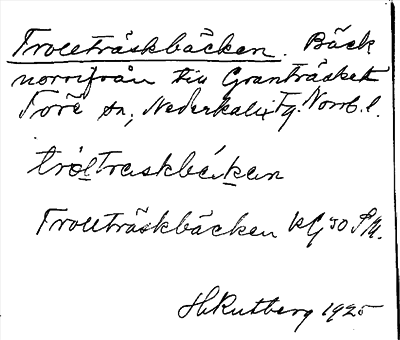 Trollträskbäcken. Bäck
norrifrån till Granträsket
Töre sn, Nederkalix Tg. Norrb. l.
tròl̲traskbäk̲en
Trollträskbäcken kG 50 SM.
HRutberg 1925